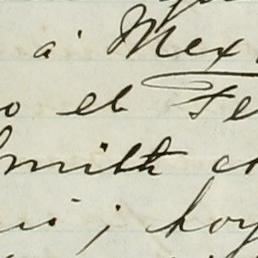 á Mex
o el Fe
Smith co
is; hoy